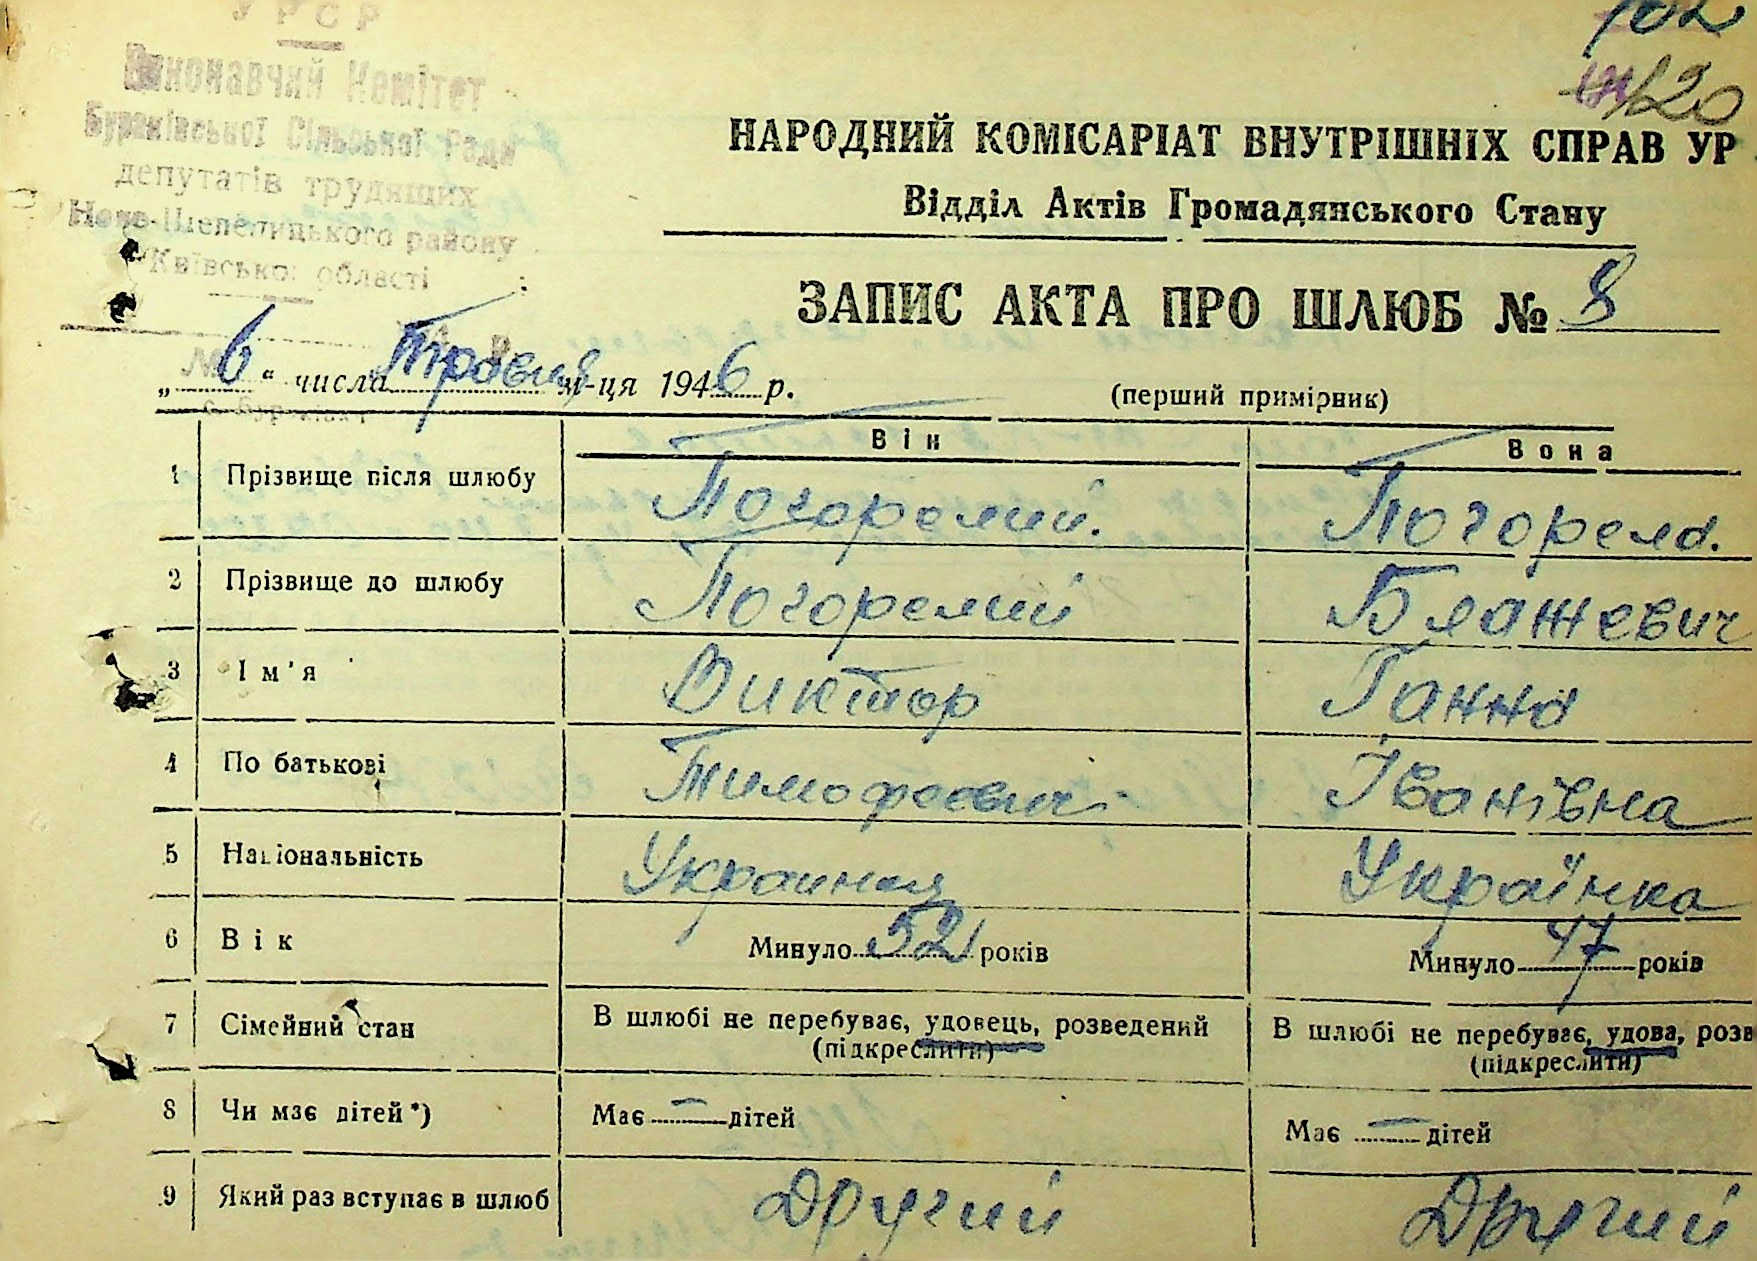 УРСР
Виконавчий Комітет
Бураківської Сільської Ради
депутатів трудящих
Ново-Шепелицького району
Київської області
102
120
НАРОДНИЙ КОМІСАРІАТ ВНУТРІШНІХ СПРАВ УР
Відділ Актів Громадянського Стану
ЗАПИС АКТА ПРО ШЛЮБ № 8
„6“ числа Травня м-ця 1946 р. (перший примірник)
Він Вона
1 Прізвище після шлюбу Погорелий. Погорела.
2 Прізвище до шлюбу Погорелий Блажевич
3 Ім'я Виктор Ганна
4 По батькові Тимофеевич Іванівна
5 Національність Украинец Українка
6 Вік Минуло 52 років Минуло 47 років
7 Сімейний стан В шлюбі не перебуває, удовець, розведений В шлюбі не перебуває, удова, розв
(підкреслити) (підкреслити)
8 Чи має дітей*) Має — дітей Має — дітей
9 Який раз вступає в шлюб Другий Другий